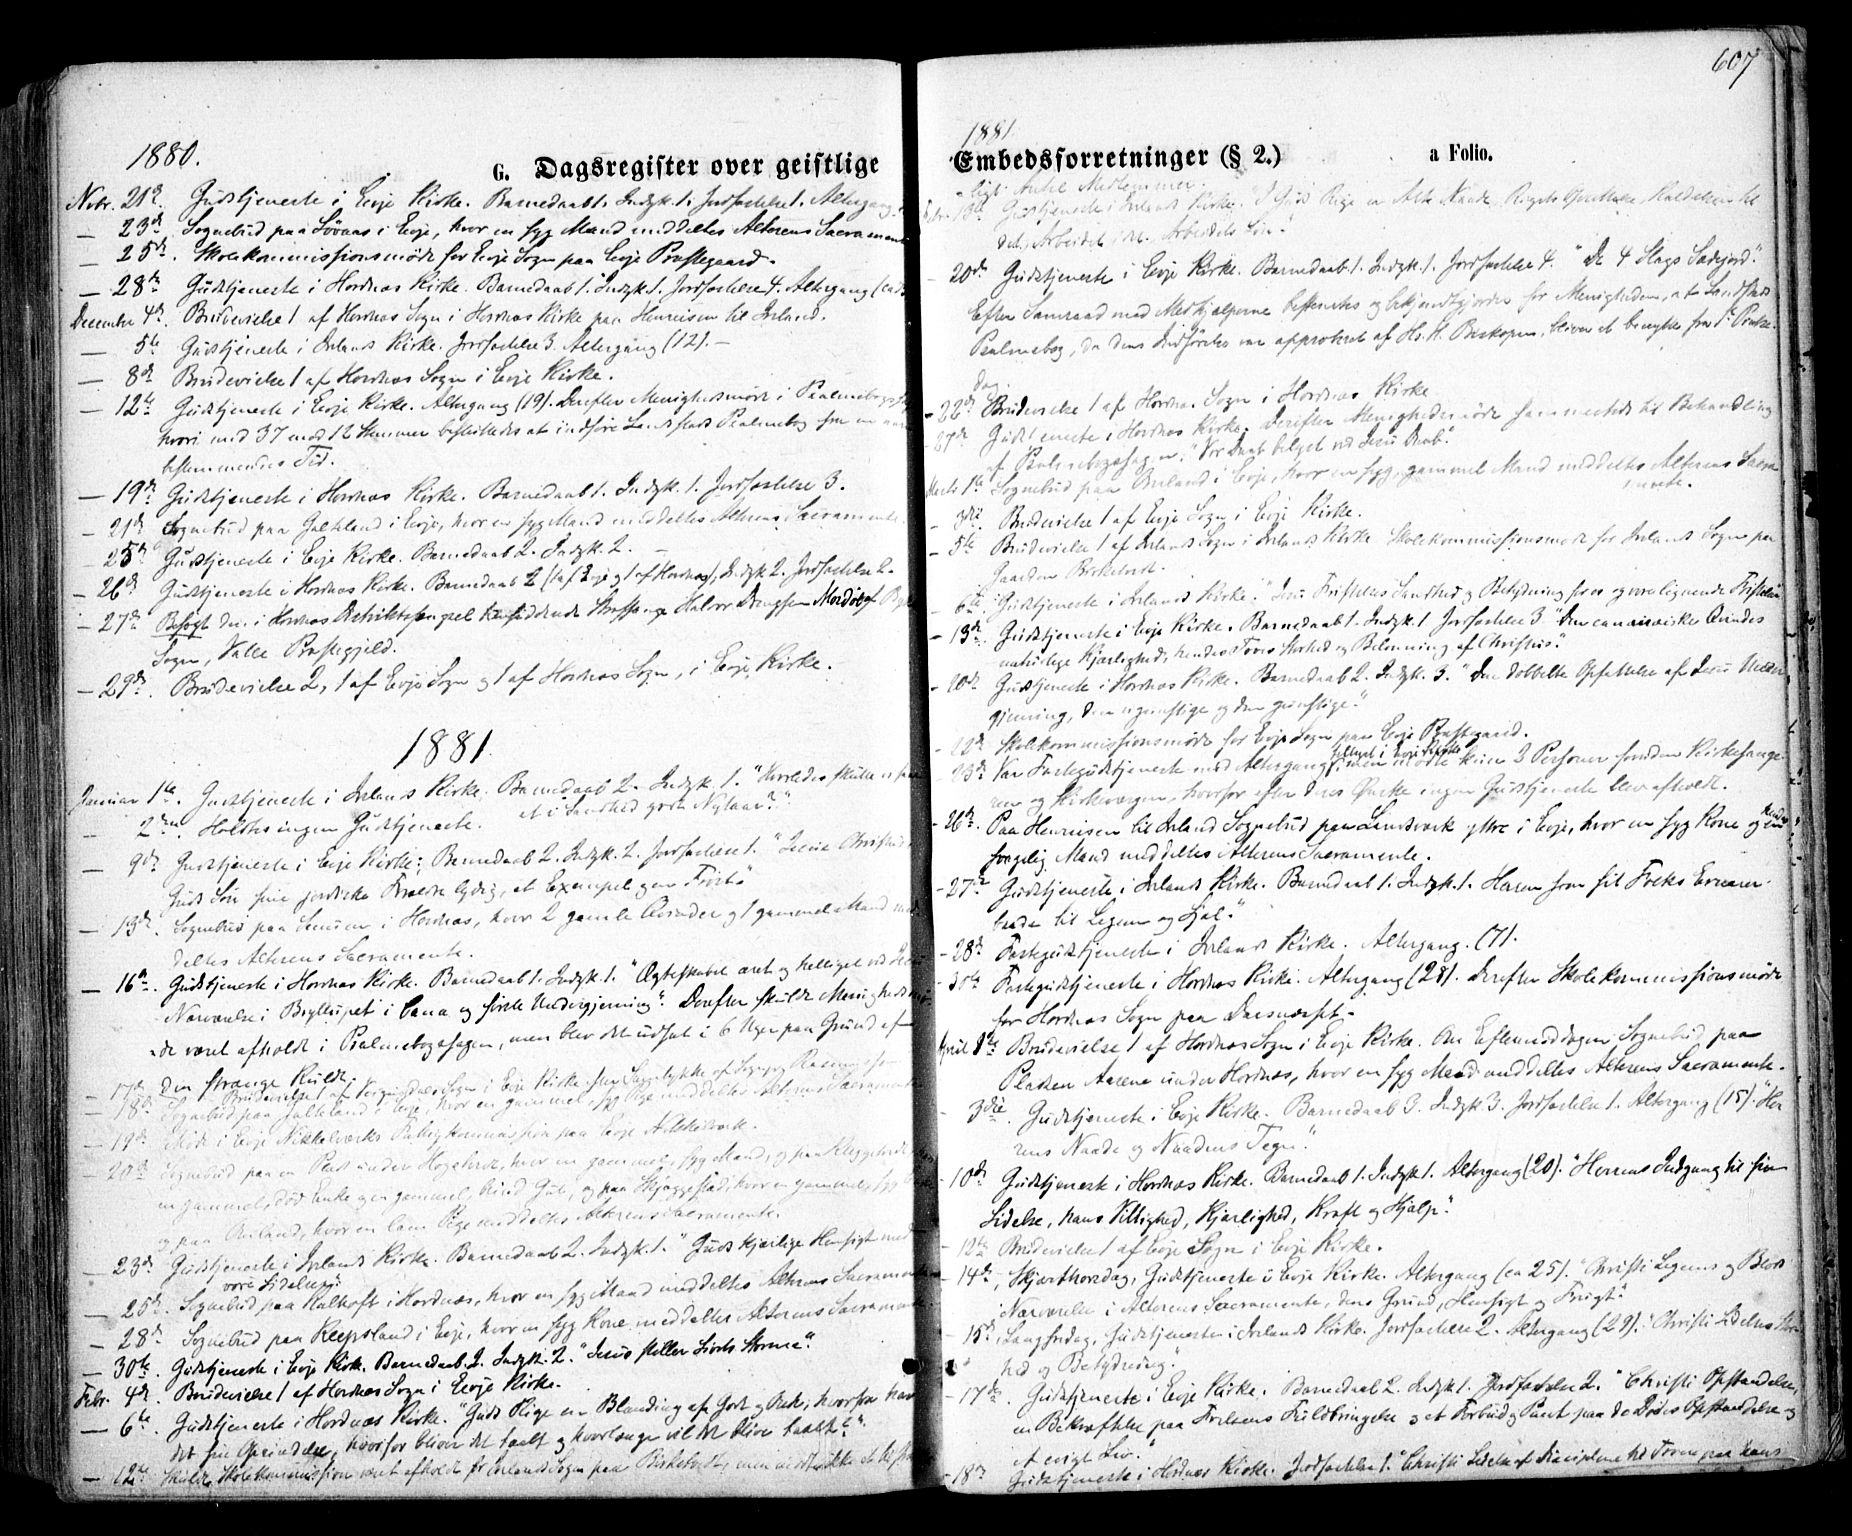 1880.
G. Dagsregister over geistlige
Novbr. 21de. Gudstjeneste i Evje Kirke. Barnedaab 1. Indgk. 1. Jordfæstelse 1. Altergang
— 23de. Sognebud paa i Evje, hvor en syg Mand meddeltes Alterens Sacramente
— 25de. Skolekommissionsmøde for Evje Sogn paa Evje Præstegaard.
— 28de. Gudstjeneste i Hordnæs Kirke. Barnedaab 1. Indgk. 1. Jordfæstelse 4. Altergang
December 4de. Brudevielse 1 af Hordnæs Sogn i Hordnæs Kirke paa Henreisen til Iveland.
— 5te Gudstjeneste i Ivelands Kirke. Jordfæstelse 3. Altergang (12). —
— 8de Brudevielse 1 af Hordnæs Sogn i Evje Kirke.
— 12te Gudstjeneste i Evje Kirke. Altergang (19). Derefter Menighedsmøde i Psalmebogs
hvori med 37 mod 12 Stemmer besluttedes at indføre Landstads Psalmebog fra en
bestemmendes Tid.
— 19de Gudstjeneste i Hordnæs Kirke. Barnedaab 1. Indgk. 1. Jordfæstelse 3.
— 21de Sognebud paa i Evje, hvor en syg Mand meddeltes Alterens Sacramente.
25de Gudstjeneste i Evje Kirke. Barnedaab 2. Indgk. 2. —
— 26de Gudstjeneste i Hordnæs Kirke. Barnedaab 2 (1 af Evje og 1 af Hordnæs), Indgk 2. Jordfæstelse 2.
— 27de Besøgt den i Hordnæs hensiddende Halvor
Sogn, Valle Præstegjeld.
— 29de. Brudevielse 2, 1 af Evje Sogn og 1 af Hordnæs Sogn, i Evje Kirke.
1881.
Januar 1te. Gudstjeneste i Ivelands Kirke. Barnedaab 2. Indgk. 1. "Hvorledes skulle vi
et i Sandhed godt Nytaar?"
— 2den. Holdtes ingen Gudstjeneste.
— 9de Gudstjeneste i Evje Kirke; Barnedaab 2. Indgk. 2. Jordfæstelse 1. "Jesus Christus
Guds Søn sine jordiske Forældre lydig, et Exempel og en Trøst"
— 13de. Sognebud paa i Hordnæs, hvor 2 gamle Qvinder og 1 gammel Mand med
deltes Alterens Sacramente.
— 16de. Gudstjeneste i Hordnæs Kirke. Barnedaab 1. Indgk. 1. "Ægteskabet æret og helliget ved Jesu
Nærværelse i Bryllupet i Cana og første Undergjerning". Derefter skulde Menighedsmø
de været afholdt i Psalmebogssagen, men blev det udsat i 6 Uger paa Grund af
den strænge Kulde.
— 17de Brudevielse 1 af Sogn i Evje Kirke
— 18de Sognebud paa i Evje, hvor en gammel, syg Pige meddeltes Alterens Sacramente
— 19de. Møde i Evje Nikkelværks Fattigkommission paa Evje Nikkelværk.
20de Sognebud paa en Plads under hvor en gammel, syg Mand, og paa
en gammel, død Enke og en gammel, blind og paa hvor en gammel, syg
og paa hvor en lam Pige meddeltes Alterens Sacramente.
— 23de Gudstjeneste i Ivelands Kirke. Barnedaab 2. Indgk. 1. "Guds kjærlige Hensigt med
vore Lidelser"
— 25de Sognebud paa i Hordnæs, hvor en syg Mand meddeltes Alterens Sacramente.
— 28de Sognebud paa Kjepsland i Evje, hvor en syg Kone meddeltes Alterens Sacramente.
— 30te. Gudstjeneste i Evje Kirke. Barnedaab 2. Indgk. 2. "Jesus stiller Livets Storme".
Febr. 4de. Brudevielse 1 af Hordnæs Sogn i Evje Kirke.
— 6te Gudstjeneste i Hordnæs Kirke. "Guds Rige en Blanding af Godt og Ondt; hvorfra har
det sin Oprindelse, hvorfor bliver det taalt og hvorlænge vil det blive taalt?"
— 12te Skulde Skolekommission været afholdt for Ivelands Sogn paa Birketveit, men
607
1881
Embedsforretninger (§ 2.) a Folio.
lige Antal Medlemmer.
Febr. 13de Gudstjeneste i Ivelands Kirke. "I Guds Rige er Alt Naade,
det, Arbeidet i det, Arbeidets Løn".
— 20de Gudstjeneste i Evje Kirke. Barnedaab 1. Indgk. 1. Jordfæstelse 4. "De 4 Slags Sædejord."
Efter Samraad med Medhjælperne besluttedes og bekjendtgjordes for Menigheden, at Landstads
Psalmebog, da dens Indførelse var approberet af Hs. H. Biskopen, bliver at benytte fra 1ste Pintse-
dag.
— 22de Brudevielse 1 af Hordnæs Sogn i Hordnæs Kirke
27de Gudstjeneste i Hordnæs Kirke. Derefter Menighedsmøde sammesteds til Behandling
af Psalmebogssagen. "Vor Daab belyst ved Jesu Daab".
Marts 1te Sognebud paa i Evje, hvor en syg, gammel Mand meddeltes Alterens Sacra
mente.
— 3die. Brudevielse 1 af Evje Sogn i Evje Kirke.
— 5te Brudevielse 1 af Ivelands Sogn i Ivelands Kirke Skolekommissionsmøde for Ivelands Sogn paa
Gaarden Birketveit.
— 6te. Gudstjeneste i Ivelands Kirke. "Jesu Fristelses Sandhed og Betydning for os og vore lignende Fristelser
— 13de. Gudstjeneste i Evje Kirke. Barnedaab 1. Indgk. 1 Jordfæstelse 3 "Den cananæiske Qvindes
naturlige Kjærlighed, hendes Troes Storhed og Belønning af Christus".
— 20de Gudstjeneste i Hordnæs Kirke. Barnedaab 2. Indgk. 3. "Den dobbelte Opfattelse af Jesu Under
gjerning, den ugunstige og den gunstige".
— 22de Skolekommissionsmøde for Evje Sogn paa Evje Præstegaard.
— 23de Var Fastegudstjeneste med Altergang tillyst i Evje Kirke, men mødte kun 3 Personer foruden Kirkesange
ren og Kirkeværgen, hvorfor efter deres Ønske ingen Gudstjeneste blev afholdt.
— 26de. Paa Henreisen til Iveland Sognebud paa ytre i Evje, hvor en syg Kone og en
svagelig Mand meddeltes Alterens Sacramente.
— 27de Gudstjeneste i Ivelands Kirke. Barnedaab 1. Indgk. 1. Herren som sit Folks Ernærer
baade til Legem og Sjæl."
— 28de Fastegudstjeneste i Ivelands Kirke. Altergang. (7).
— 30te Fastegudstjeneste i Hordnæs Kirke. Altergang (28). Derefter Skolekommissionsmøde
for Hordnæs Sogn paa
April 1ste Brudevielse 1 af Hordnæs Sogn i Evje Kirke. Om Eftermiddagen Sognebud paa
Pladsen under Hordnæs, hvor en syg Mand meddeltes Alterens Sacramente.
— 3die. Gudstjeneste i Evje Kirke. Barnedaab 3. Indgk 3. Jordfæstelse 1. Altergang (15). "Her
rens Naade og Naadens Tegn".
— 10de Gudstjeneste i Hordnæs Kirke. Barnedaab 1. Indgk 1. Altergang (20). "Herrens Indgang til sin
Lidelse, hans Villighed, Kjærlighed, Kraft og Hjælp".
— 12te Brudevielse 1 af Evje Sogn i Evje Kirke.
— 14de, Skjærthorsdag, Gudstjeneste i Evje Kirke. Altergang (ca 25). "Christi Legems og Blods
Nærværelse i Alterens Sacramente, dens Grund, Hensigt og Frugt".
— 15de, Langfredag, Gudstjeneste i Ivelands Kirke. Jordfæstelse 2. Altergang (29). "Christi Lidelses
hed og Betydning".
— 17de. Gudstjeneste i Evje Kirke. Barnedaab 2. Indgk 1. Jordfæstelse 2. "Christi Opstandelse,
en Bekræftelse paa Forløsens Fuldbringelse og et Forbud og Pant paa de Dødes Opstandelse og
et evigt Liv".
— 18de Gudstjeneste i Hordnæs Kirke. Jordfæstelse 1. "Christi paa hans